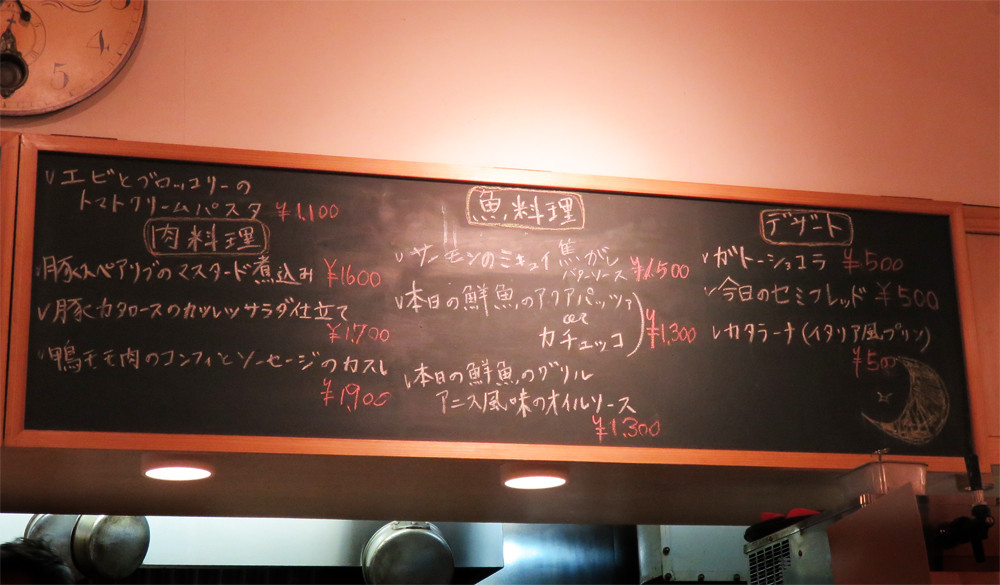 4
5
✓エビとブロッコリーの
トマトクリームパスタ ¥1,100
肉料理
✓豚スペアリブのマスタード煮込み ¥1600
✓豚カタロースのカツレツサラダ仕立て
¥1,700
✓鴨モモ肉のコンフィとソーセージのカスレ
¥1,900
魚料理
✓サーモンのミキュイ 焦がし
バターソース ¥1,500
✓本日の鮮魚のアクアパッツァ
or
カチュッコ ¥1,300
✓本日の鮮魚のグリル
アニス風味のオイルソース
¥1,300
デザート
✓ガトーショコラ ¥500
✓今日のセミフレッド ¥500
✓カタラーナ(イタリア風プリン)
¥500